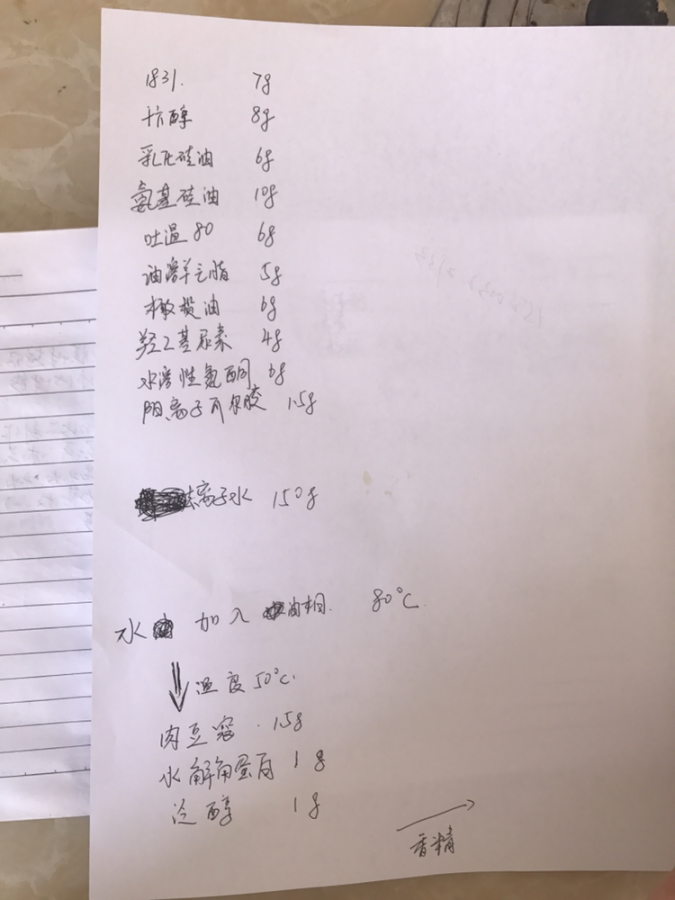 1831. 7g
十六醇 8g
乳化硅油 6g
氨基硅油 10g
吐温80 6g
油溶羊毛脂 5g
橄榄油 6g
羟乙基尿素 4g
水溶性氮酮 6g
阳离子瓜尔胶 1.5g
去离子水 150g
水 加入 油相. 80℃
温度50℃.
肉豆蔻 15g
水解角蛋白 1g
泛醇 1g
香精